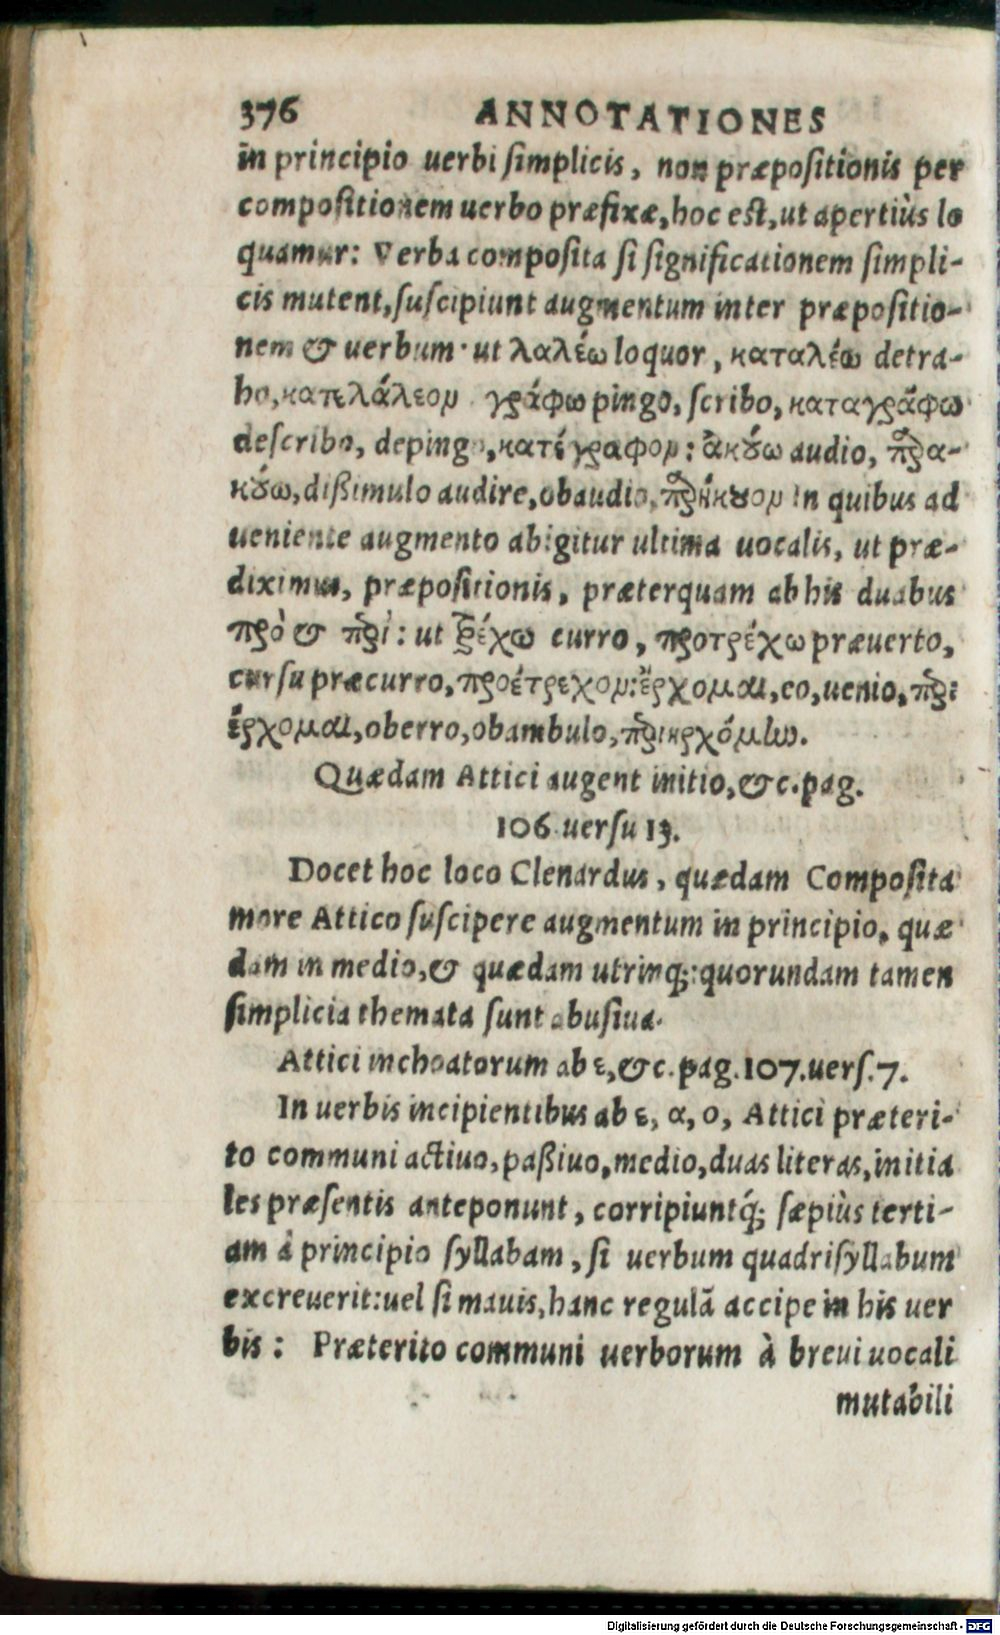 376 ANNOTATIONES
in principio uerbi simplicis, non præpositionis per
compositionem uerbo præfixæ, hoc est, ut apertiùs lo
quamur: Verba composita si significationem simpli-
cis mutent, suscipiunt augmentum inter præpositio-
nem & uerbum· ut λαλέω loquor, καταλέω detra-
ho, κατελάλεον γράφω pingo, scribo, καταγράφω
describo, depingo, κατέγραφον: ἀκούω audio, παρα-
κούω, dißimulo audire, obaudio, παρήκουον In quibus ad
ueniente augmento abigitur ultima uocalis, ut præ-
diximus, præpositionis, præterquam ab his duabus
πρὸ & περὶ: ut τρέχω curro, προτρέχω præuerto,
cursu præcurro, προέτρεχον: ἔρχομαι, eo, uenio, περι
έρχομαι, oberro, obambulo, περιηρχόμην.
Quædam Attici augent initio, &c. pag.
106 uersu 13.
Docet hoc loco Clenardus, quædam Composita
more Attico suscipere augmentum in principio, quæ
dam in medio, & quædam utrinq;: quorundam tamen
simplicia themata sunt abusiua.
Attici inchoatorum ab ε, &c. pag. 107. uers. 7.
In uerbis incipientibus ab ε, α, ο, Attici præteri-
to communi actiuo, paßiuo, medio, duas literas, initia
les præsentis anteponunt, corripiuntq́; sæpiùs terti-
am à principio syllabam, si uerbum quadrisyllabum
excreuerit: uel si mauis, hanc regulã accipe in his uer
bis: Præterito communi uerborum à breui uocali
mutabili
Digitalisierung gefördert durch die Deutsche Forschungsgemeinschaft - DFG